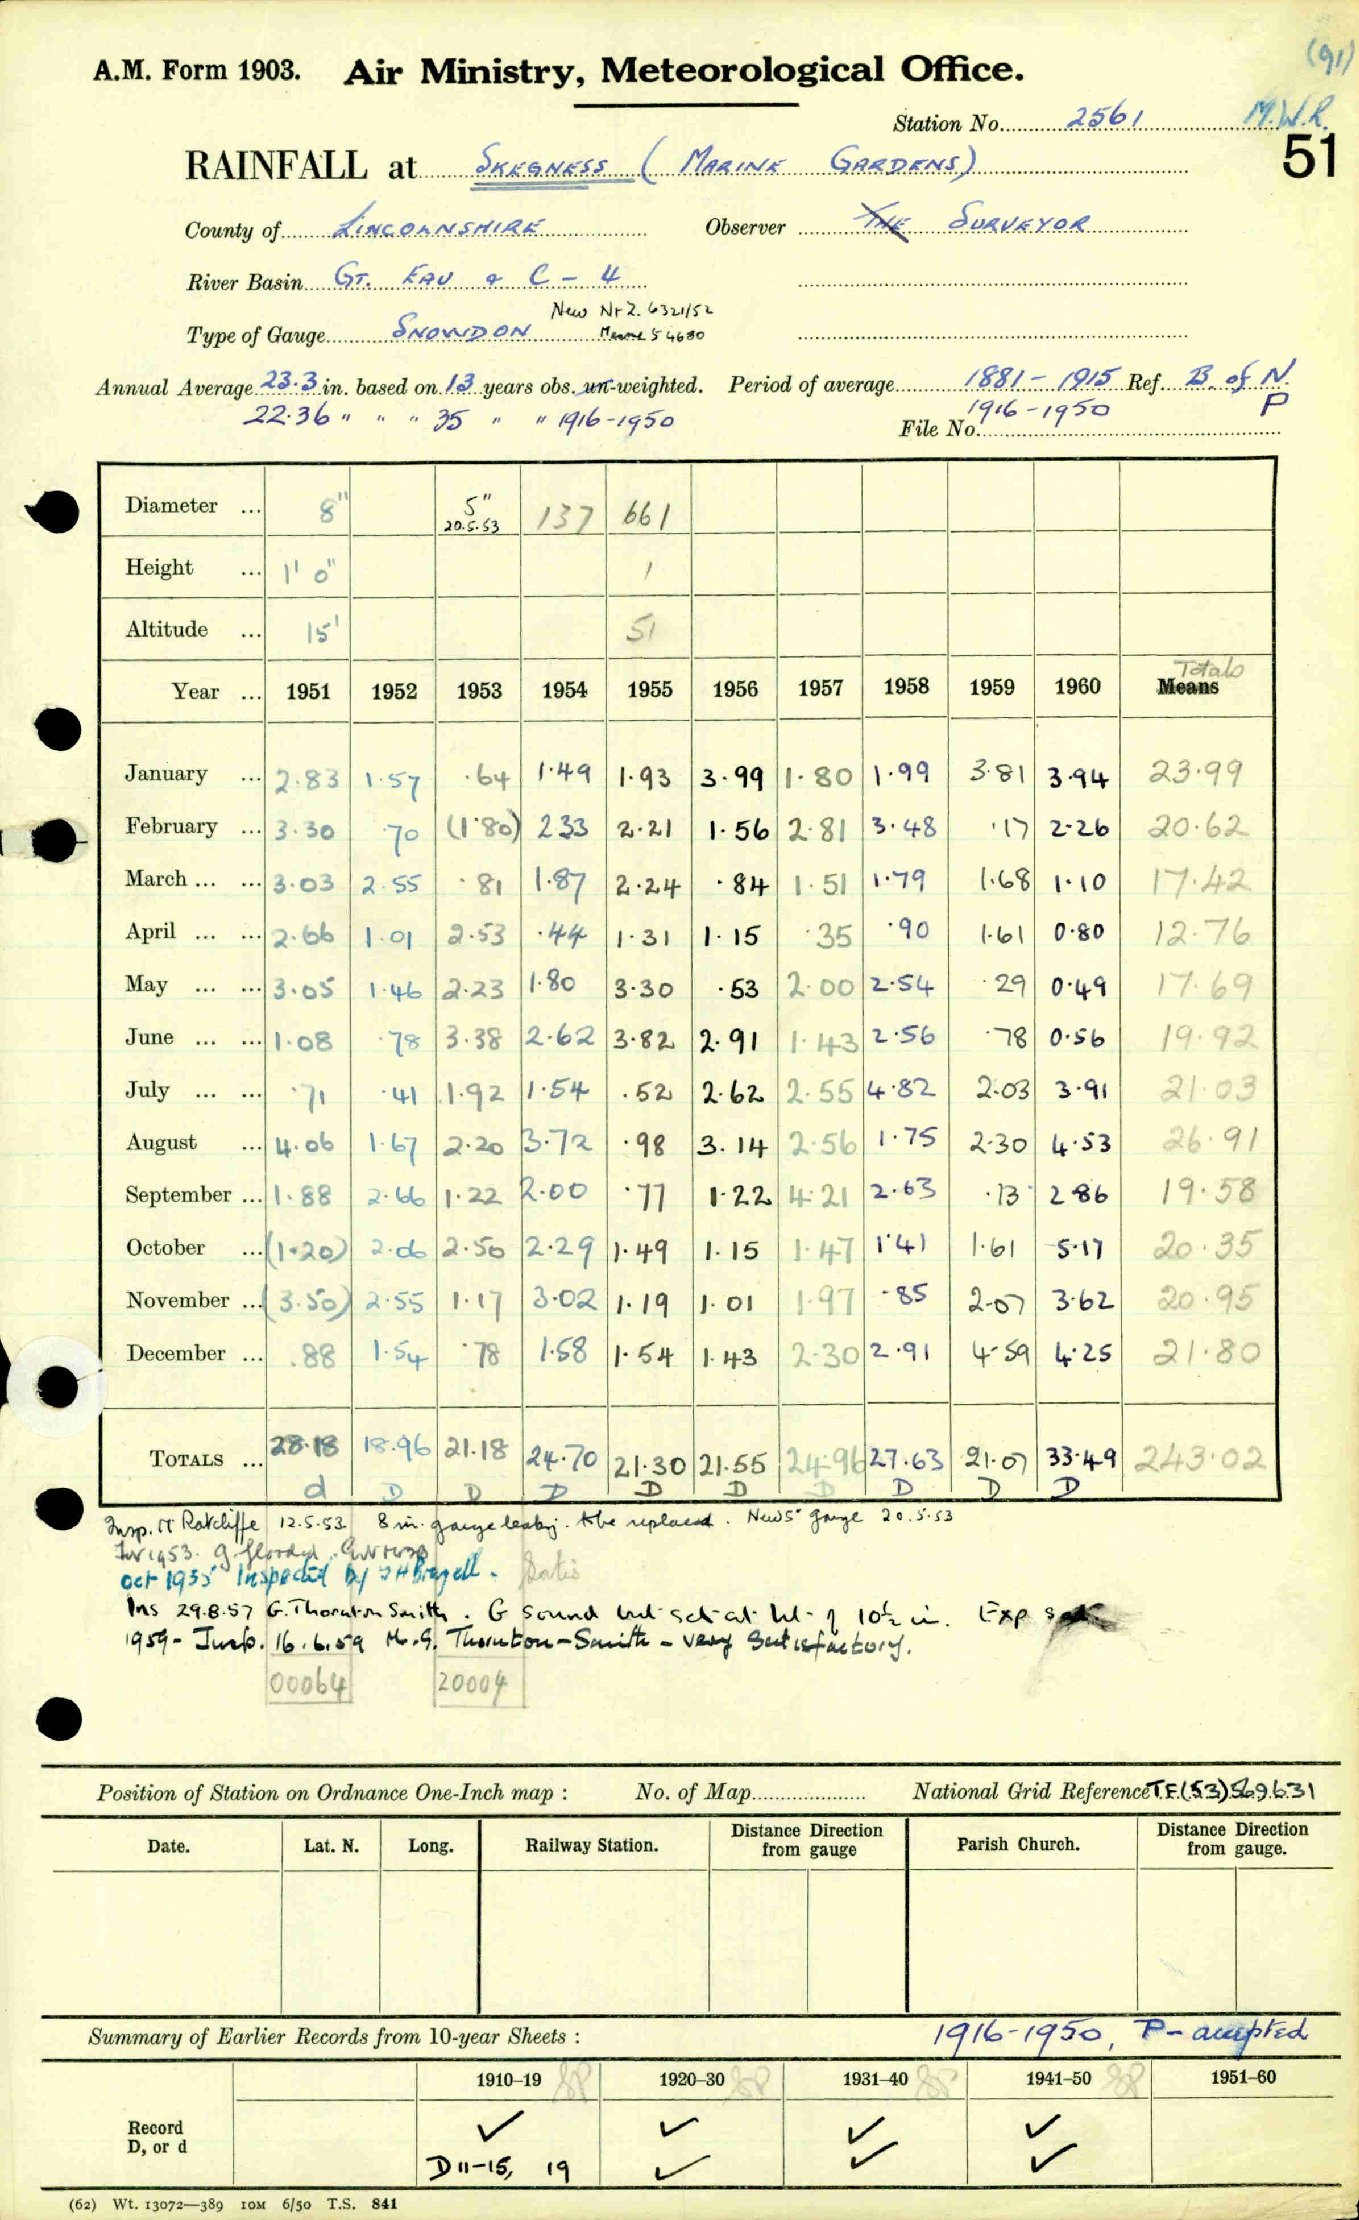 (91)
A.M. Form 1903. Air Ministry, Meteorological Office.
Station No. 2561 M.W.R.
51
RAINFALL at SKEGNESS (MARINE GARDENS)
County of LINCOLNSHIRE Observer THE SURVEYOR
River Basin GT. EAU & C – 4
New Nr 2. 6321/52
Type of Gauge SNOWDON
Annual Average 23.3 in. based on 13 years obs. un-weighted. Period of average 1881 – 1915 Ref. B. of N.
22.36 " " " 35 " " 1916-1950 1916-1950 P
File No.
Diameter ... 8" 5" 20.5.53 137 661
Height ... 1' 0" 1
Altitude ... 15' 51
Totals
Year ... 1951 1952 1953 1954 1955 1956 1957 1958 1959 1960 Means
January ... 2.83 1.57 .64 1.49 1.93 3.99 1.80 1.99 3.81 3.94 23.99
February ... 3.30 .70 (1.80) 2.33 2.21 1.56 2.81 3.48 .17 2.26 20.62
March ... ... 3.03 2.55 .81 1.87 2.24 .84 1.51 1.79 1.68 1.10 17.42
April ... ... 2.66 1.01 2.53 .44 1.31 1.15 .35 .90 1.61 0.80 12.76
May ... ... 3.05 1.46 2.23 1.80 3.30 .53 2.00 2.54 .29 0.49 17.69
June ... ... 1.08 .78 3.38 2.62 3.82 2.91 1.43 2.56 .78 0.56 19.92
July ... ... .71 .41 1.92 1.54 .52 2.62 2.55 4.82 2.03 3.91 21.03
August ... 4.06 1.67 2.20 3.72 .98 3.14 2.56 1.75 2.30 4.53 26.91
September ... 1.88 2.66 1.22 2.00 .77 1.22 4.21 2.63 .13 2.86 19.58
October ... (1.20) 2.06 2.50 2.29 1.49 1.15 1.47 1.41 1.61 5.17 20.35
November ... (3.50) 2.55 1.17 3.02 1.19 1.01 1.97 .85 2.07 3.62 20.95
December ... .88 1.54 .78 1.58 1.54 1.43 2.30 2.91 4.59 4.25 21.80
TOTALS ... 28.18 18.96 21.18 24.70 21.30 21.55 24.96 27.63 21.07 33.49 243.02
d D D D D D D D D D
Insp. Mr Ratcliffe 12.5.53 8 in. gauge leaking. to be replaced. New 5" gauge 20.5.53
1953. g flooded
Oct 1955 Inspected by Satis
Ins 29.8.57 G. Thornton Smith. G sound but set at ht. of 10½ in. Exp
1959 - Insp. 16.6.59 Mr. G. Thornton-Smith - very satisfactory.
00064 20004
Position of Station on Ordnance One-Inch map : No. of Map National Grid Reference T.F.(53)569631
Date. Lat. N. Long. Railway Station. Distance Direction from gauge Parish Church. Distance Direction from gauge.
Summary of Earlier Records from 10-year Sheets : 1916-1950, P - accepted
1910–19 1920–30 1931–40 1941–50 1951–60
Record ✓ ✓ ✓ ✓
D, or d D 11-15, 19 ✓ ✓ ✓
(62) Wt. 13072—389 10M 6/50 T.S. 841